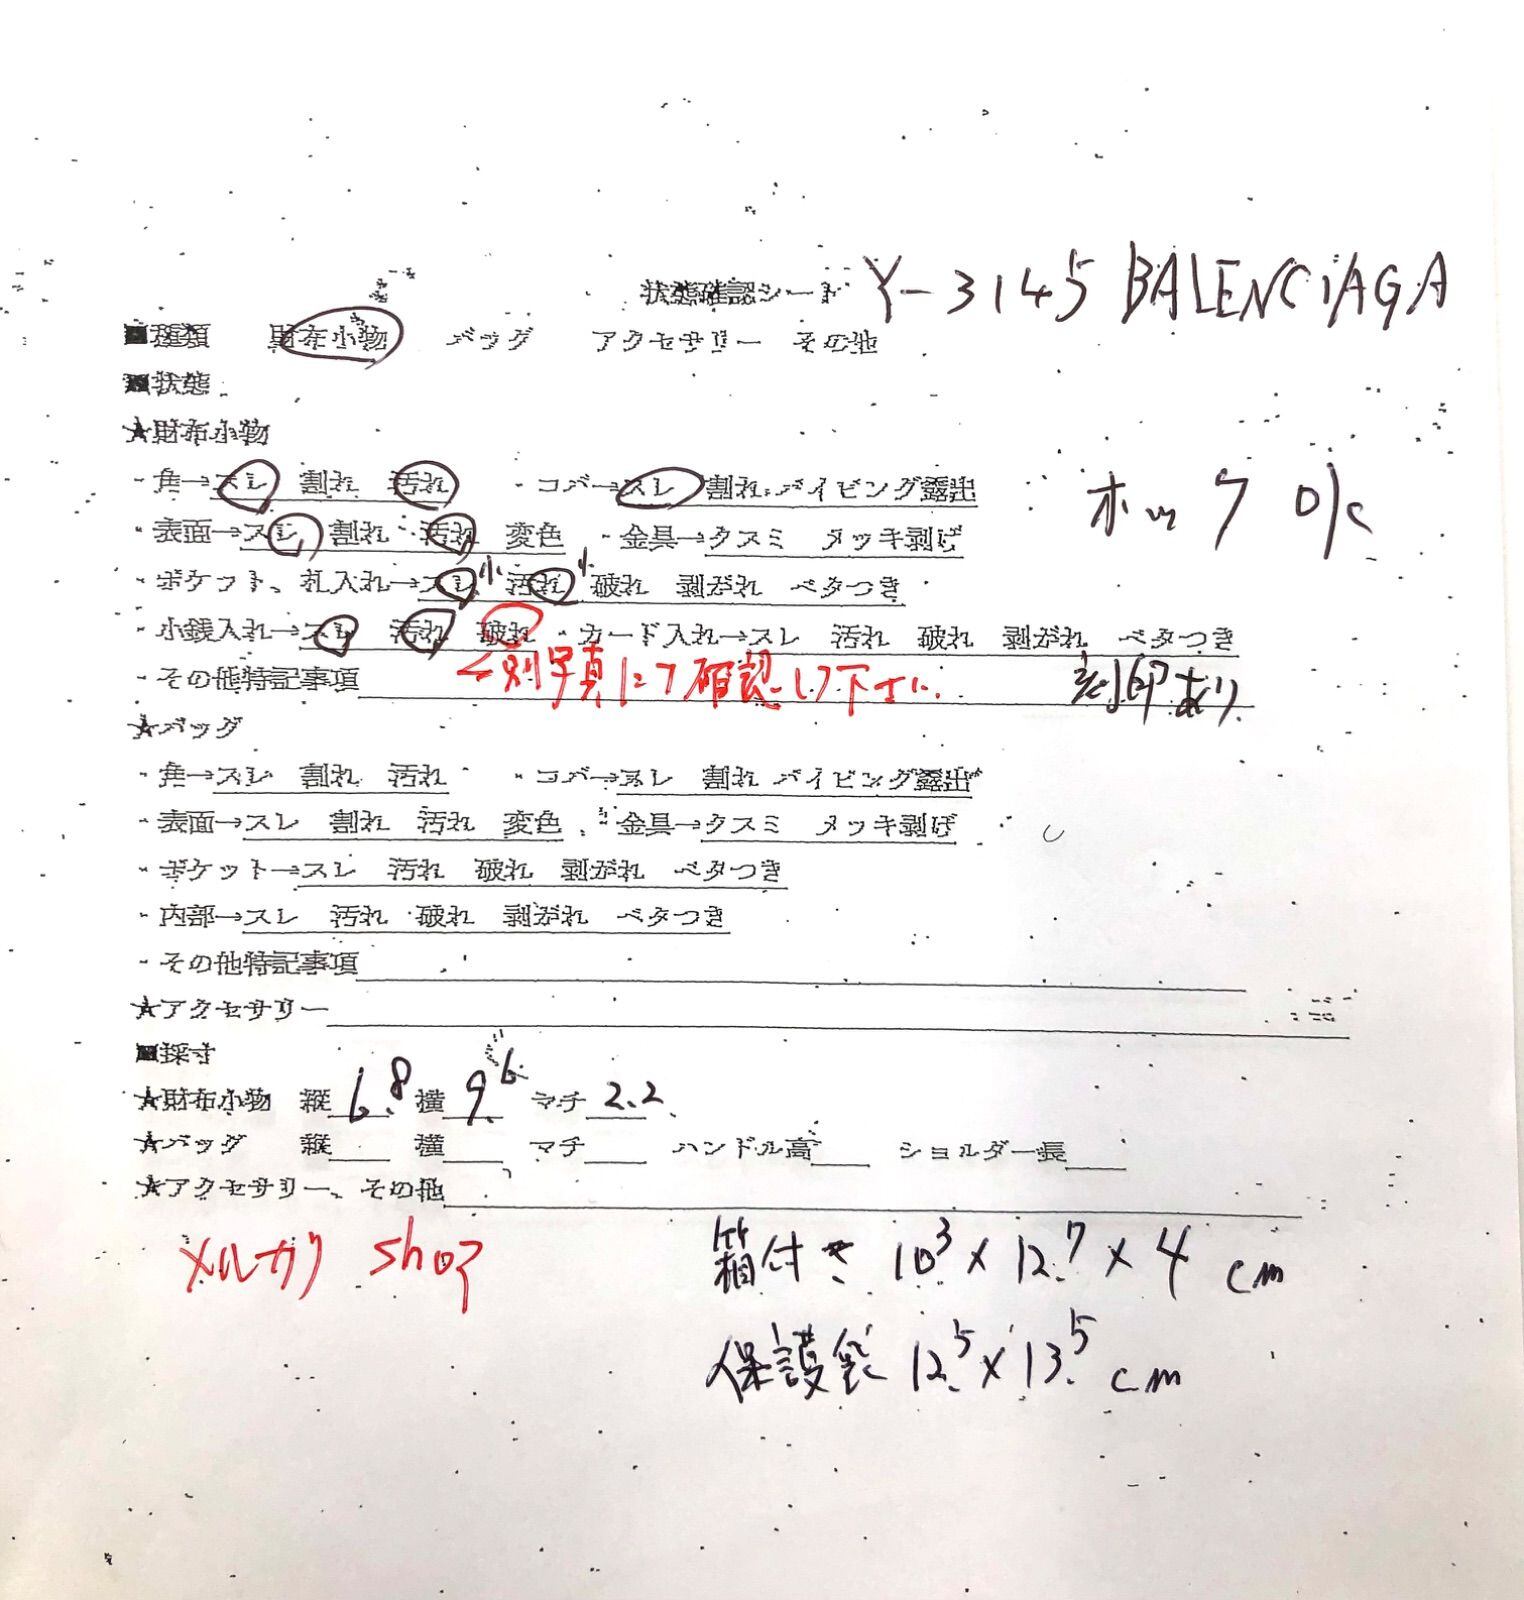 状態確認シート Y-3145 BALENCIAGA
■種類 財布小物 バッグ アクセサリー その他
■状態
★財布小物
・角→スレ 割れ 汚れ ・コバ→スレ 割れ パイピング露出
ホック OK
・表面→スレ 割れ 汚れ 変色 ・金具→クスミ メッキ剥げ
・ポケット、札入れ→スレ小 汚れ小 破れ 剥がれ ベタつき
・小銭入れ→スレ 汚れ 破れ ・カード入れ→スレ 汚れ 破れ 剥がれ ベタつき
・その他特記事項 ←別写真にて確認して下さい. 刻印あり
★バッグ
・角→スレ 割れ 汚れ ・コバ→スレ 割れ パイピング露出
・表面→スレ 割れ 汚れ 変色 ・金具→クスミ メッキ剥げ
・ポケット→スレ 汚れ 破れ 剥がれ ベタつき
・内部→スレ 汚れ 破れ 剥がれ ベタつき
・その他特記事項
★アクセサリー
■採寸
★財布小物 縦 6.8 横 9.6 マチ 2.2
★バッグ 縦 横 マチ ハンドル高 ショルダー長
★アクセサリー、その他
メルカリ shop
箱付き 10.3 x 12.7 x 4 cm
保護袋 12.5 x 13.5 cm